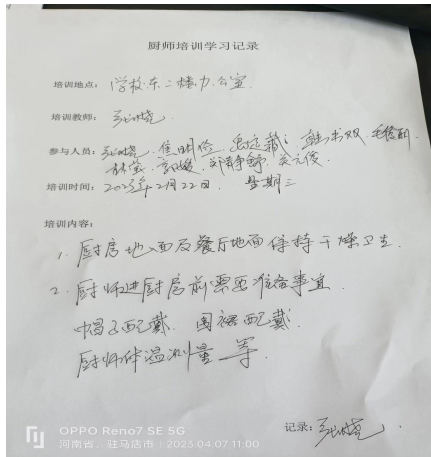 厨师培训学习记录
培训地点：学校东二楼办公室
培训教师：
参与人员：
培训时间：2023年2月22日 星期三
培训内容：
1. 厨房地面及餐厅地面保持干燥卫生.
2. 厨师进厨房前需要准备事宜
帽子配戴. 围裙配戴.
厨师体温测量 等
记录：
OPPO Reno7 SE 5G
河南省、驻马店市 | 2023.04.07 11:00